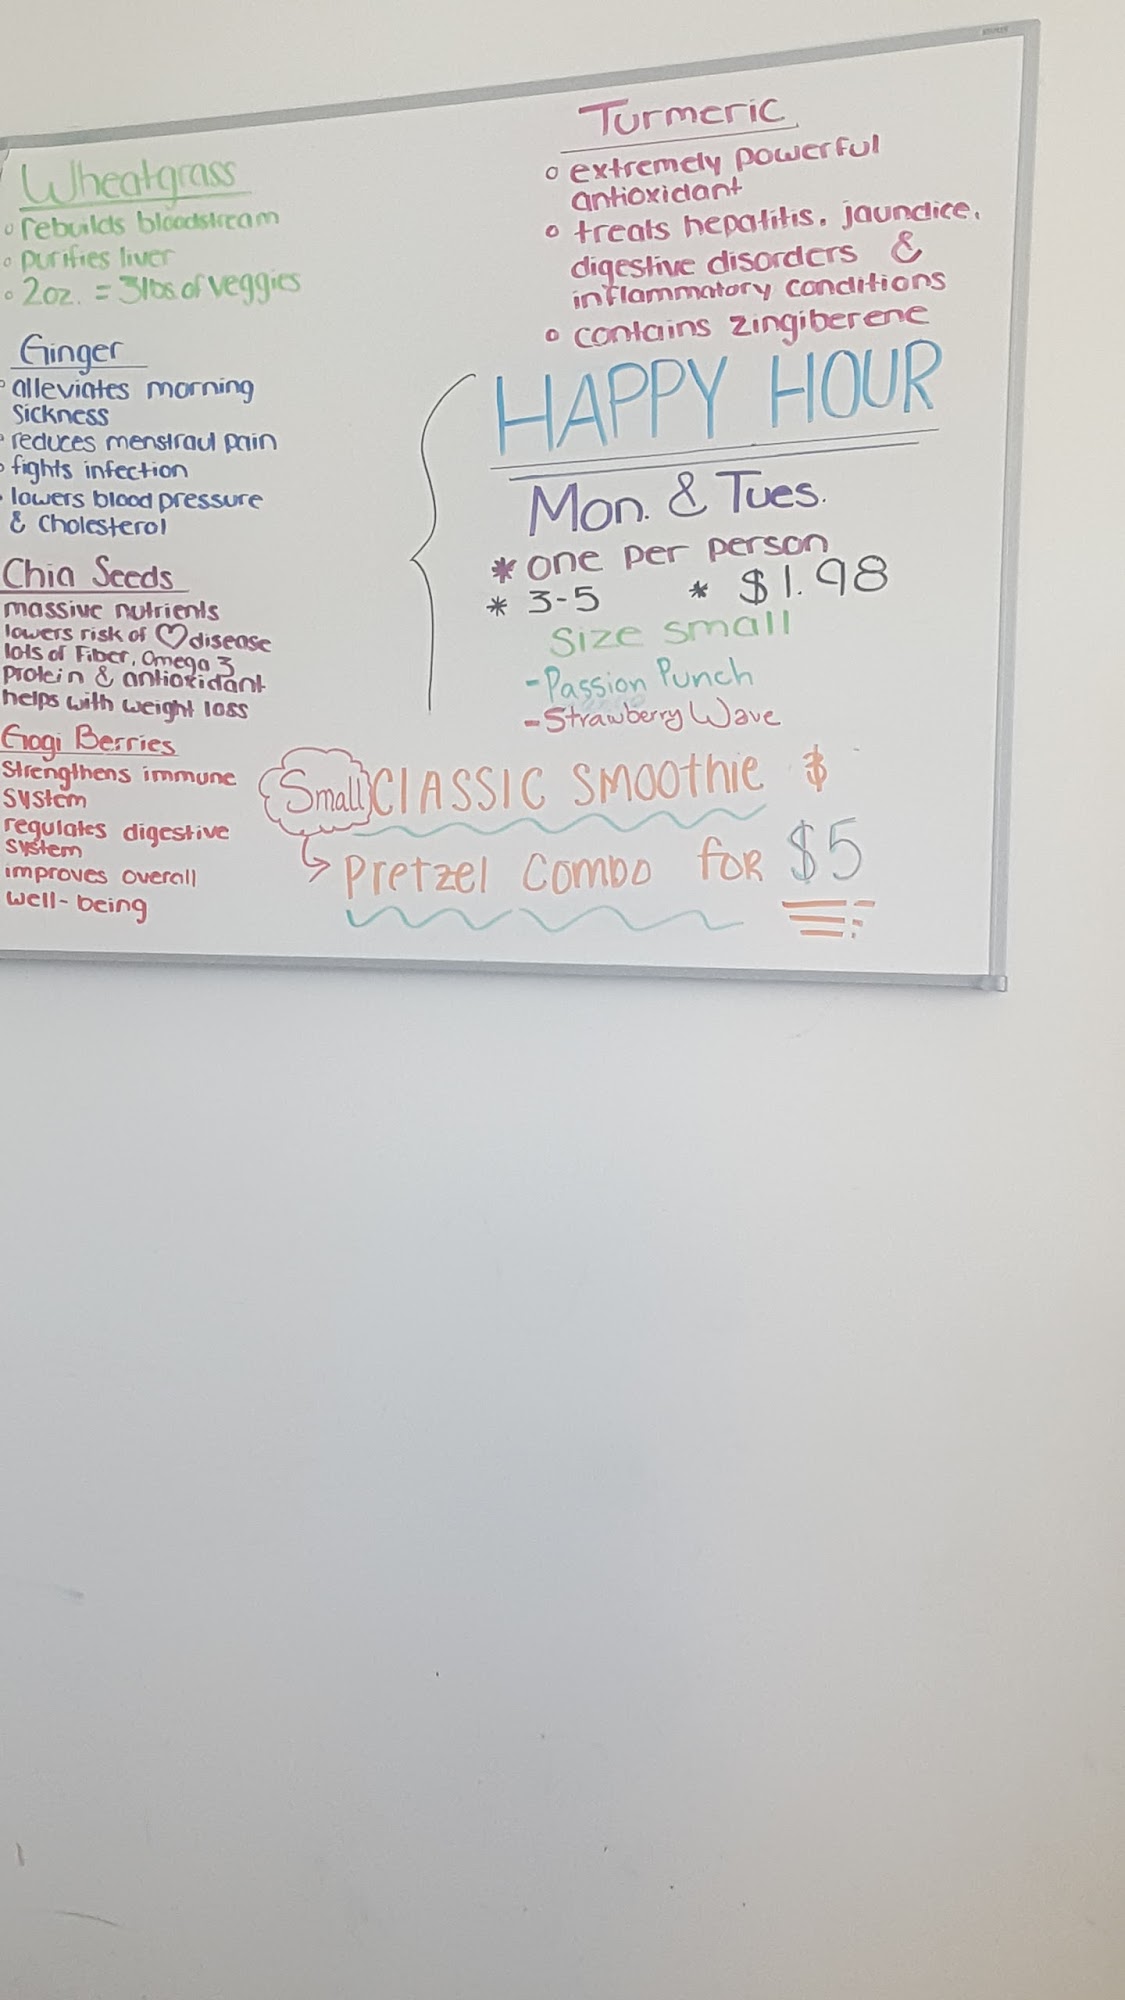 Wheatgrass
rebuilds bloodstream
purifies liver
2oz. = 3lbs of veggies
Ginger
alleviates morning
sickness
reduces menstraul pain
fights infection
lowers blood pressure
& cholesterol
Chia Seeds
massive nutrients
lowers risk of ♡ disease
lots of Fiber, Omega 3
protein & antioxidant
helps with weight loss
Gogi Berries
strengthens immune
system
regulates digestive
system
improves overall
well-being
Turmeric
extremely powerful
antioxidant
treats hepatitis, jaundice,
digestive disorders &
inflammatory conditions
contains zingiberene
HAPPY HOUR
Mon. & Tues.
* one per person
* 3-5 * $1.98
Size small
- Passion Punch
- Strawberry Wave
Small CLASSIC SMOOTHIE $
Pretzel Combo for $5